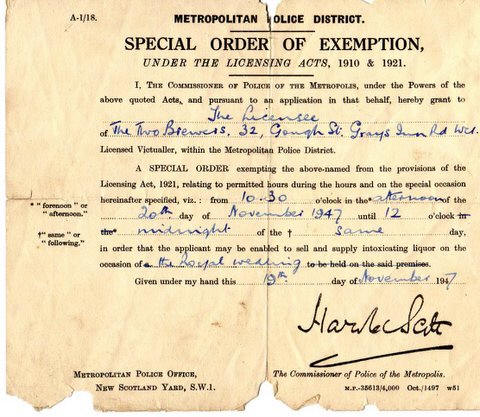 A-I/18.
METROPOLITAN POLICE DISTRICT.
SPECIAL ORDER OF EXEMPTION,
UNDER THE LICENSING ACTS, 1910 & 1921.
I, THE COMMISSIONER OF POLICE OF THE METROPOLIS, under the Powers of the
above quoted Acts, and pursuant to an application in that behalf, hereby grant to
The Licensee
of The Two Brewers, 32, Gough St. Grays Inn Rd WC1.
Licensed Victualler, within the Metropolitan Police District.
A SPECIAL ORDER exempting the above-named from the provisions of the
Licensing Act, 1921, relating to permitted hours during the hours and on the special occasion
hereinafter specified, viz.: from 10.30 o'clock in the * afternoon of the
* "forenoon" or "afternoon."
20th day of November 1947 until 12 o'clock in
the* midnight of the † same day,
† "same" or "following."
in order that the applicant may be enabled to sell and supply intoxicating liquor on the
occasion of a the Royal Wedding to be held on the said premises.
Given under my hand this 19th day of November 1947
Harold Scott
METROPOLITAN POLICE OFFICE,
NEW SCOTLAND YARD, S.W.1.
The Commissioner of Police of the Metropolis.
M.P.-35613/4,000 Oct./1497 w51